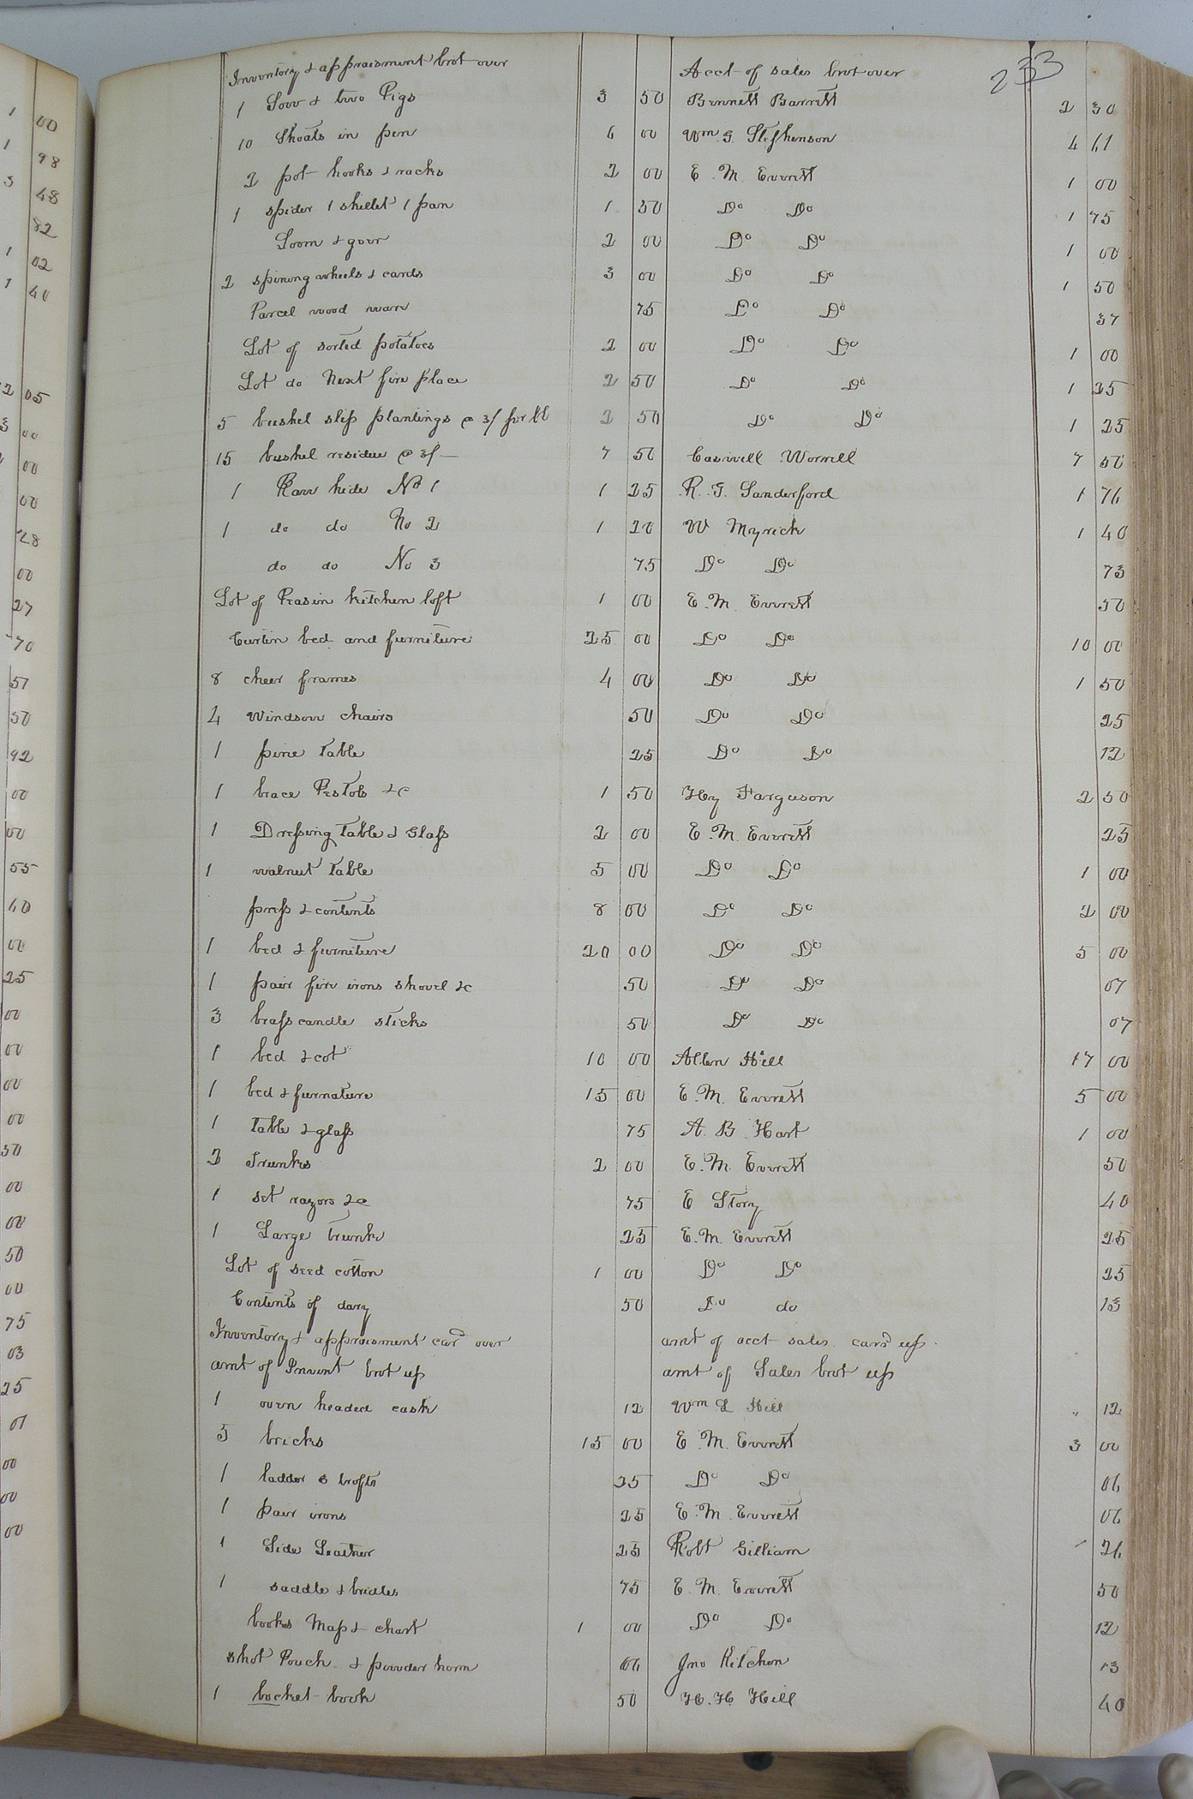 233
Inventory & appraisment brot over Acct of sales brot over
1 Sow & two Pigs 3 50 Bennett Barrett 2 30
10 Shoats in pen 6 00 Wm G. Stephenson 4 61
2 pot hooks & racks 2 00 E. M. Everett 1 00
1 spider 1 skillet 1 pan 1 50 Do Do 1 75
Loom & gear 2 00 Do Do 1 00
2 spining wheels & cards 3 00 Do Do 1 50
Parcel wood ware 75 Do Do 37
Lot of sorted potatoes 2 00 Do Do 1 00
Lot do Next fire place 2 50 Do Do 1 25
5 bushel slip plantings @ 3/ 2 50 Do Do 1 25
15 bushel residue @ 3/ 7 50 Caswell Worrell 7 50
1 Raw hide No 1 1 25 R. G. Sanderford 1 76
1 do do No 2 1 20 W Myrick 1 40
do do No 3 75 Do Do 73
Lot of Peas in kitchen loft 1 00 E. M. Everett 50
Curtin bed and furniture 25 00 Do Do 10 00
8 cheer frames 4 00 Do Do 1 50
4 Windsow chairs 50 Do Do 25
1 pine table 25 Do Do 12
1 brace Pestols &c 1 50 Hy Farguson 2 50
1 Dressing table & Glass 2 00 E. M. Everett 25
1 walnut table 5 00 Do Do 1 00
press & contents 8 00 Do Do 2 00
1 bed & furniture 20 00 Do Do 5 00
1 pair fire irons shovel &c 50 Do Do 07
3 brass candle sticks 50 Do Do 07
1 bed & cot 10 00 Allen Hill 17 00
1 bed & furnature 15 00 E. M. Everett 5 00
1 table & glass 75 A. B. Hart 1 00
2 Trunks 2 00 E. M. Everett 50
1 set razors &c 75 E Story 40
1 Large trunk 25 E. M. Everett 25
Lot of seed cotton 1 00 Do Do 25
Contents of dary 50 Do do 13
Inventory & appraisment card over amt of acct sales card up
amt of Invent brot up amt of Sales brot up
1 oven headed cask 12 Wm L Hill " 12
5 bricks 15 00 E. M. Everett 3 00
1 ladder 25 Do Do 06
1 pair irons 25 E. M. Everett 06
1 Side Leather 25 Robt Gilliam 26
1 saddle & bridles 75 E. M. Everett 50
books Map & chart 1 00 Do Do 12
shot Pouch & powder horn 06 Jno Kitchen 13
1 bocket book 50 H. H. Hill 40
1 00
1 98
3 48
82
1 02
1 40
2 05
3 00
00
00
28
00
27
70
57
50
92
00
00
55
60
00
25
00
00
00
00
50
00
00
50
00
75
03
25
01
00
00
00